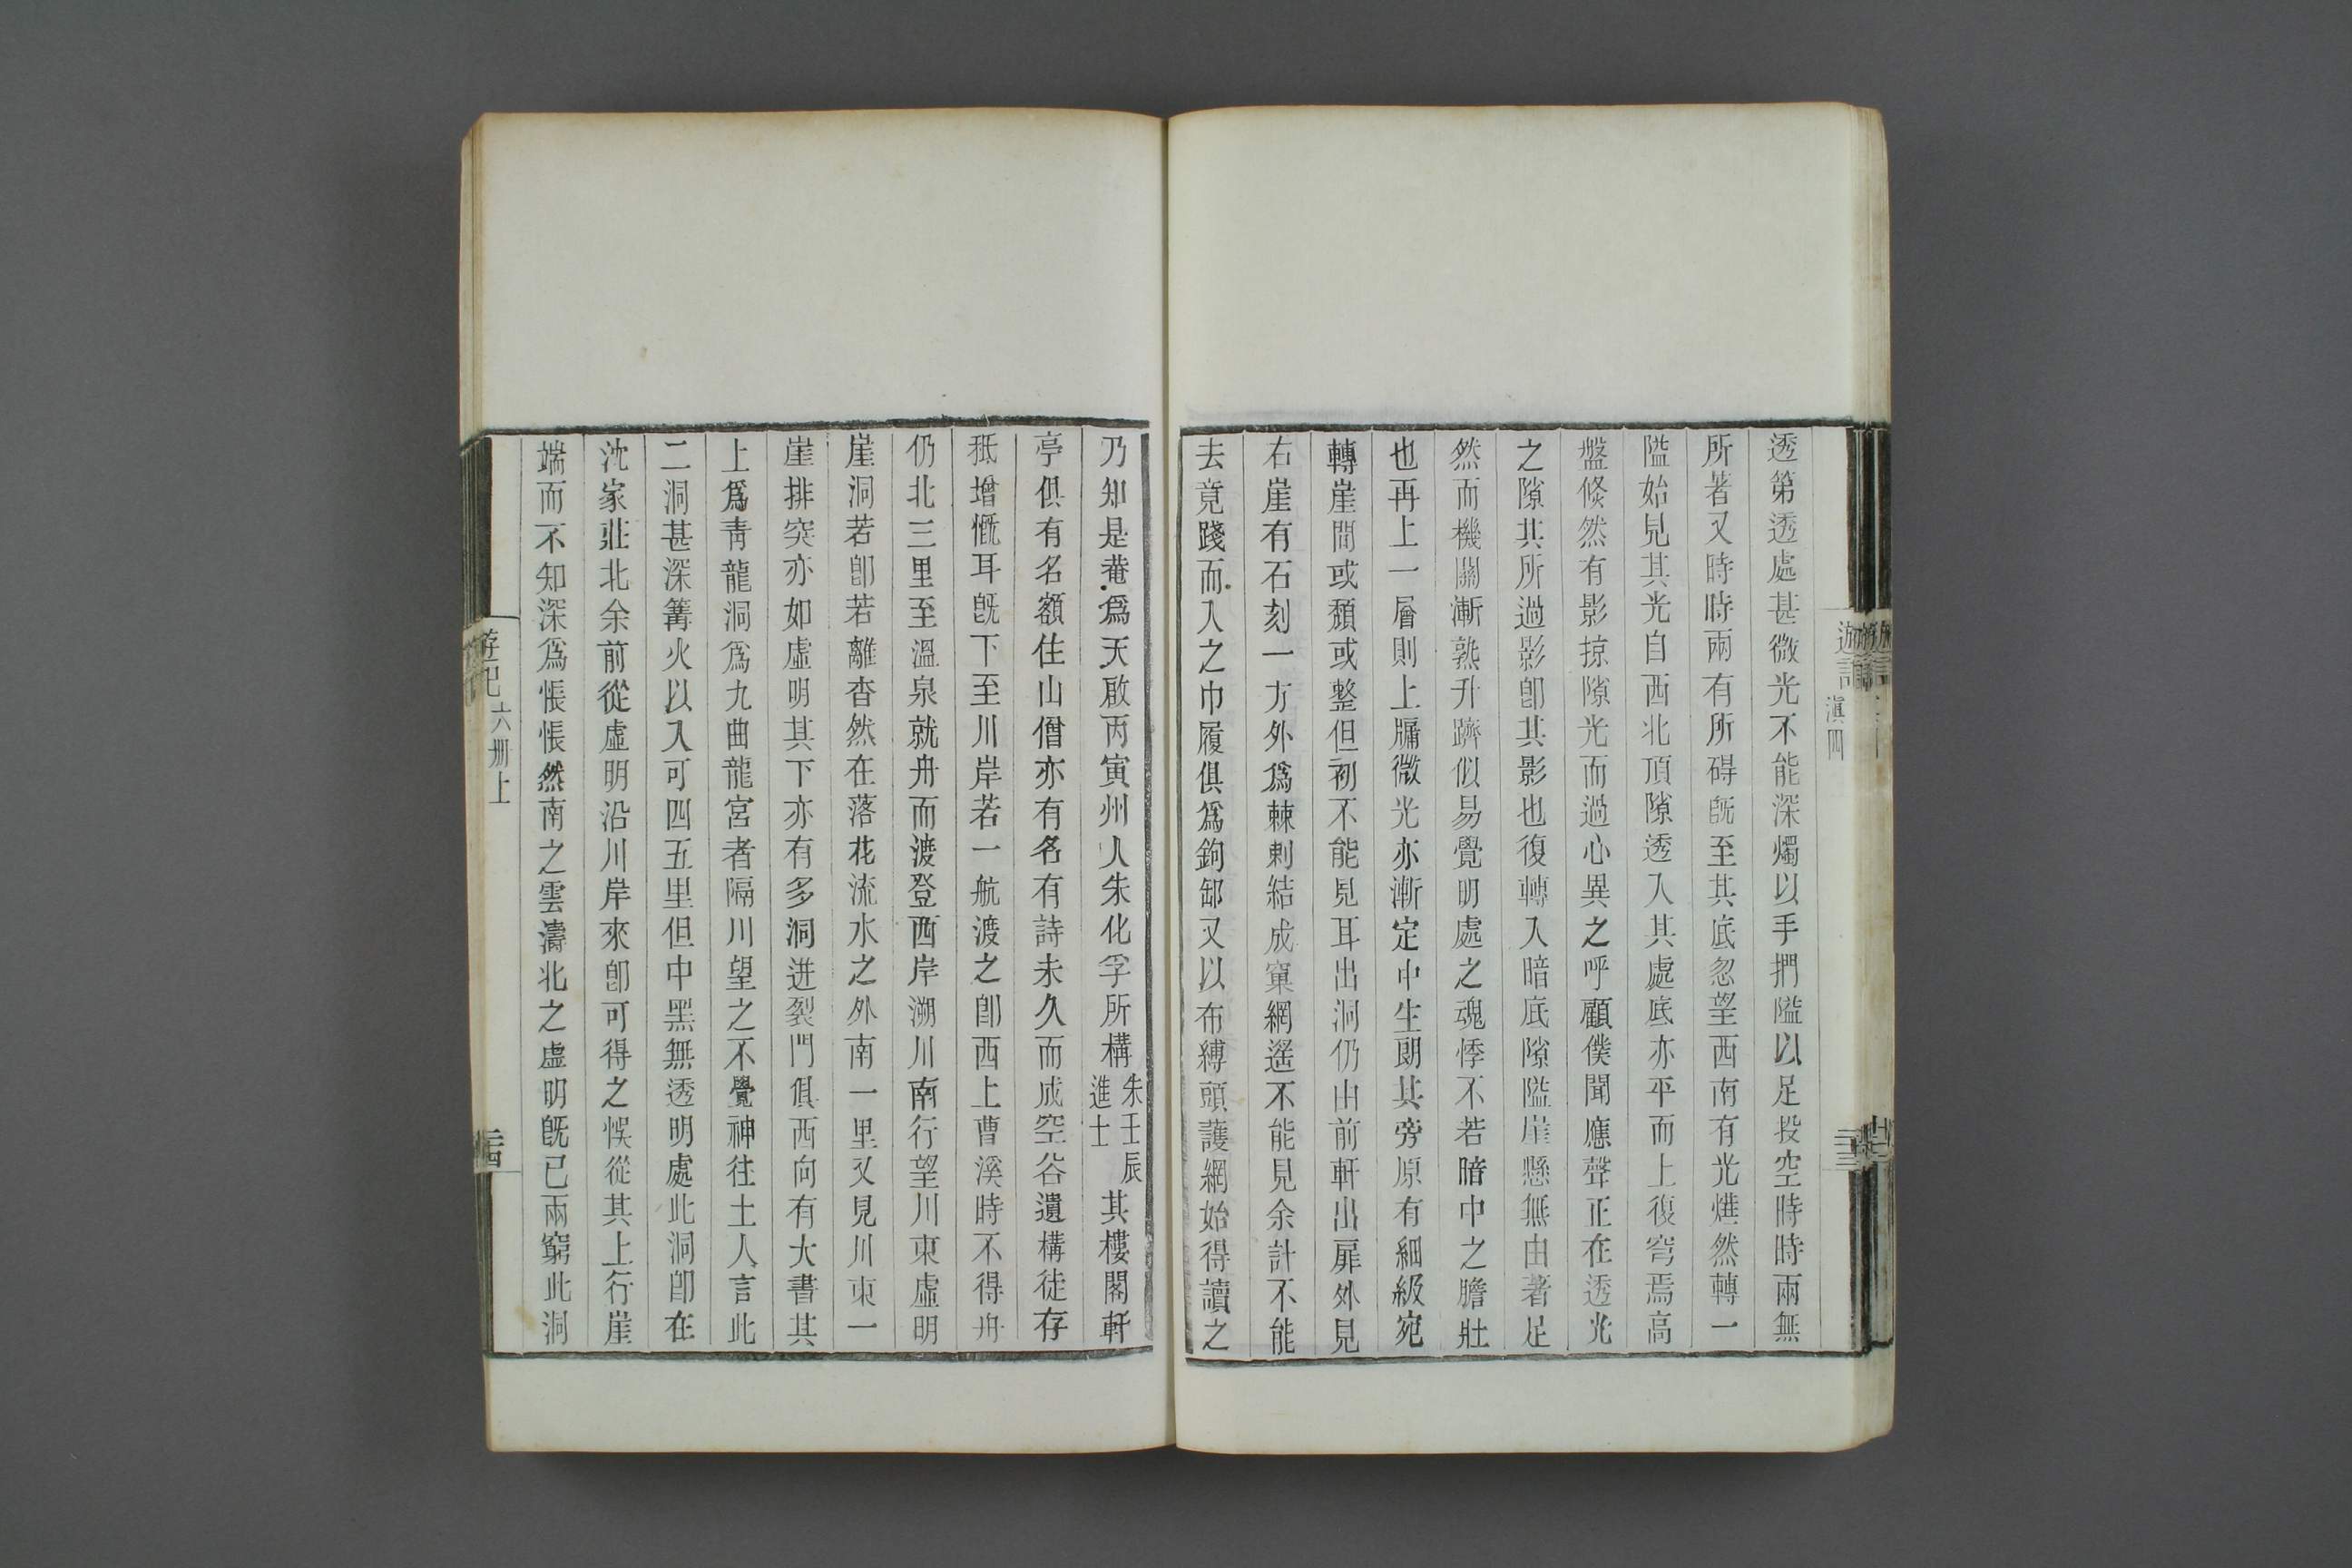 透第透處甚微光不能深燭以手捫隘以足投空時時兩無
所著又時時兩有所碍旣至其底忽望西南有光燁然轉一
隘始見其光自西北頂隙透入其處底亦平而上復穹焉高
盤倐然有影掠隙光而過心異之呼顧僕聞應聲正在透光
之隙其所過影卽其影也復轉入暗底隙隘崖懸無由著足
然而機關漸熟升躋似易覺明處之魂悸不若暗中之膽壯
也再上一層則上牖微光亦漸定中生朗其旁原有細級宛
轉崖間或頹或整但初不能見耳出洞仍由前軒出扉外見
右崖有石刻一方外爲棘刺結成窠網遙不能見余計不能
去竟踐而入之巾履俱爲鉤卸又以布縛頭護網始得讀之
乃知是菴爲天啟丙寅州人朱化孚所構朱壬辰進士其樓閣軒
亭俱有名額住山僧亦有名有詩未久而成空谷遺構徒存
秪增慨耳旣下至川岸若一航渡之卽西上曹溪時不得舟
仍北三里至溫泉就舟而渡登西岸溯川南行望川東虛明
崖洞若卽若離杳然在落花流水之外南一里又見川東一
崖排突亦如虛明其下亦有多洞迸裂門俱西向有大書其
上爲靑龍洞爲九曲龍宮者隔川望之不覺神往土人言此
二洞甚深篝火以入可四五里但中黑無透明處此洞卽在
沈家莊北余前從虛明沿川岸來卽可得之悞從其上行崖
端而不知深爲悵悵然南之雲濤北之虛明旣已兩窮此洞
遊記
滇四
遊記
六册上